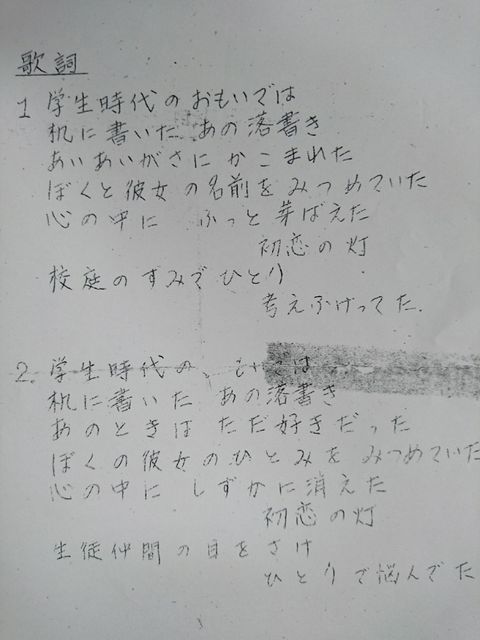 歌詞
1 学生時代のおもいでは
机に書いた あの落書き
あいあいがさに かこまれた
ぼくと彼女の名前をみつめていた
心の中に ふっと芽ばえた
初恋の灯
校庭のすみでひとり
考えふけってた.
2. 学生時代の は
机に書いた あの落書き
あのときは ただ好きだった
ぼくの彼女のひとみを みつめていた
心の中に しずかに消えた
初恋の灯
生徒仲間の目をさけ
ひとりで悩んでた